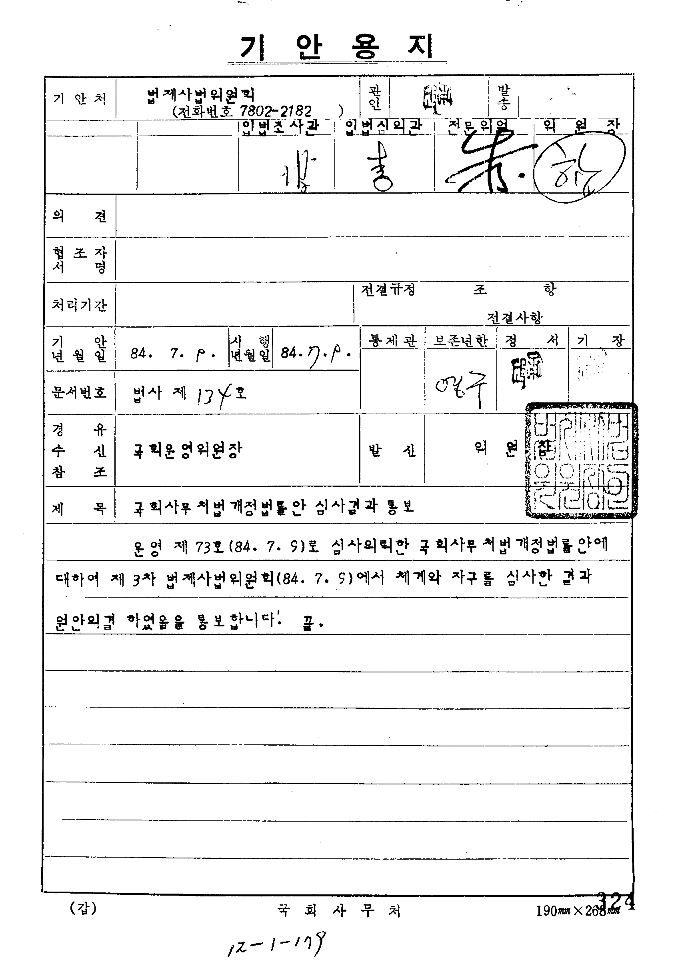 기 안 용 지
기 안 처 법제사법위원회 관인 발송
(전화번호 7802-2182 )
입법조사관 입법심의관 전문위원 위 원 장
의 견
협 조 자
서 명
처리기간 전결규정 조 항
전결사항
기 안
년 월 일 84. 7. 9. 시 행
년월일 84. 7. 9. 통제관 보존년한 정 서 기 장
영구
문서번호 법사 제 134 호
경 유
수 신 국회운영위원장 발 신 위 원 장
참 조
제 목 국회사무처법개정법률안 심사결과 통보
운영 제 73호(84. 7. 9)로 심사의뢰한 국회사무처법개정법률안에
대하여 제 3차 법제사법위원회(84. 7. 9)에서 체계와 자구를 심사한 결과
원안의결 하였음을 통보합니다. 끝.
(갑) 국 회 사 무 처 190㎜×268㎜
324
12-1-179